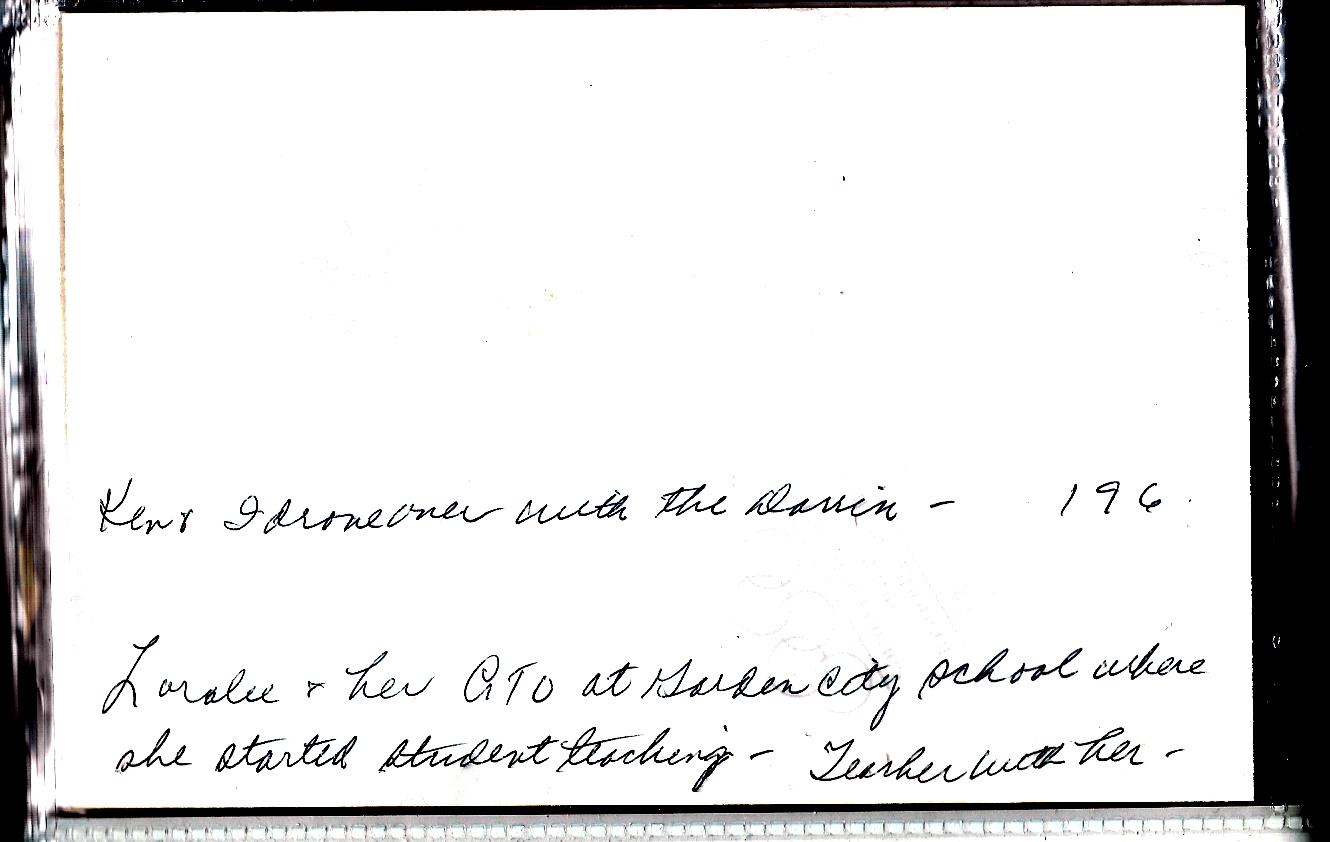 Ken & I drone over with the Darrin - 196
Loralee & her GTO at Garden City school where
she started student teaching - Teacher with her -